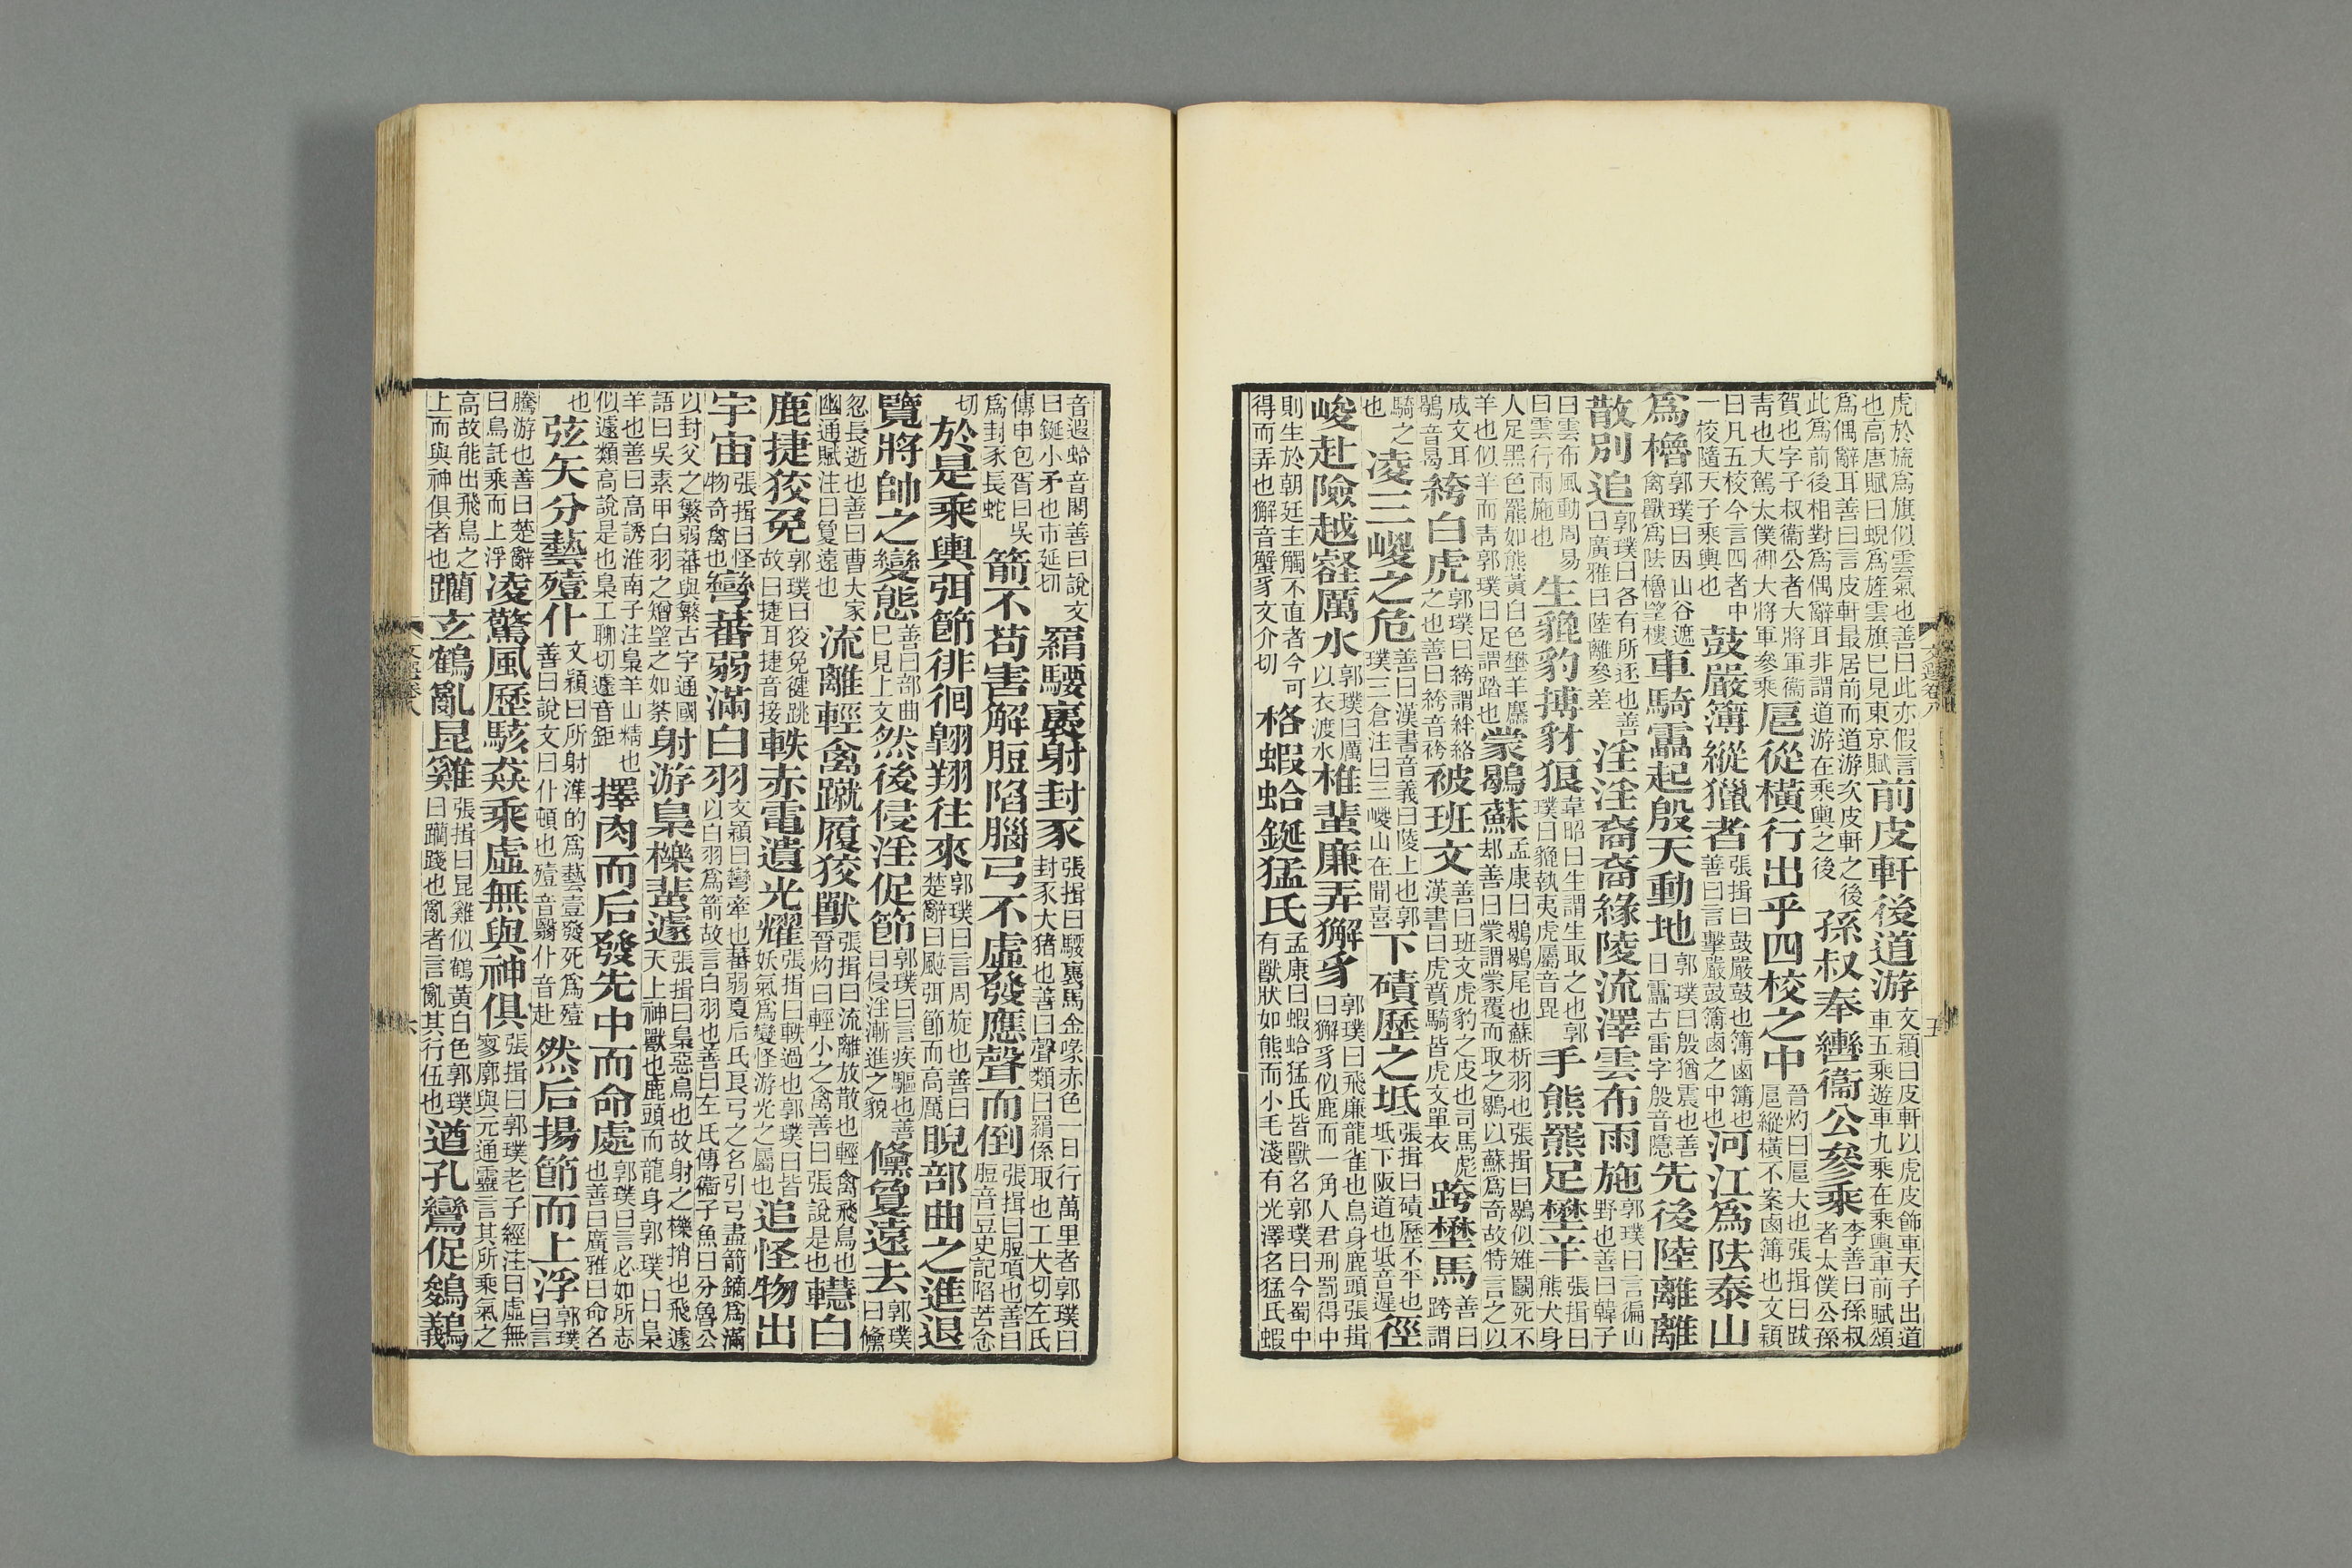 虎於旒爲旗似雲氣也善曰此亦假言也高唐賦曰蜺爲旌雲旗已見東京賦前皮軒後道游文穎曰皮軒以虎皮飾車天子出道車五乘遊車九乘在乘輿車前賦頌
爲偶辭耳善曰言皮軒最居前而道游次皮軒之後此爲前後相對爲偶辭耳非謂道游在乘輿之後孫叔奉轡衞公參乘李善曰孫叔者太僕公孫
賀也字子叔衞公者大將軍衞靑也大駕太僕御大將軍參乘扈從橫行出乎四校之中晉灼曰扈大也張揖曰跋扈縱橫不案鹵簿也文穎
曰凡五校今言四者中一校隨天子乘輿也鼓嚴簿縱獵者張揖曰鼓嚴鼓也簿鹵簿也善曰言擊嚴鼓簿鹵之中也河江爲阹泰山
爲櫓郭璞曰因山谷遮禽獸爲阹櫓望樓車騎靁起殷天動地郭璞曰殷猶震也善曰靁古雷字殷音隱先後陸離離
散別追郭璞曰各有所逐也善曰廣雅曰陸離參差淫淫裔裔緣陵流澤雲布雨施郭璞曰言徧山野也善曰韓子
曰雲布風動周易曰雲行雨施也生貔豹搏豺狼韋昭曰生謂生取之也郭璞曰貔執夷虎屬音毘手熊羆足壄羊張揖曰熊犬身
人足黑色羆如熊黃白色壄羊麢羊也似羊而靑郭璞曰足謂踏也蒙鶡蘇孟康曰鶡鶡尾也蘇析羽也張揖曰鶡似雉鬭死不郄善曰蒙謂蒙覆而取之鶡以蘇爲奇故特言之以
成文耳鶡音曷絝白虎郭璞曰絝謂絆絡之也善曰絝音袴被班文善曰班文虎豹之皮也司馬彪漢書曰虎賁騎皆虎文單衣跨壄馬善曰跨謂
騎之也凌三嵏之危善曰漢書音義曰陵上也郭璞三倉注曰三嵏山在聞喜下磧歷之坻張揖曰磧歷不平也坻下阪道也坻音遲徑
峻赴險越壑厲水郭璞曰厲以衣渡水椎蜚廉弄獬豸郭璞曰飛廉龍雀也鳥身鹿頭張揖曰獬豸似鹿而一角人君刑罰得中
則生於朝廷主觸不直者今可得而弄也獬音蟹豸文介切格蝦蛤鋋猛氏孟康曰蝦蛤猛氏皆獸名郭璞曰今蜀中有獸狀如熊而小毛淺有光澤名猛氏蝦
音遐蛤音閤善曰說文曰鋋小矛也市延切羂騕褭射封豕張揖曰騕褭馬金喙赤色一日行萬里者郭璞曰封豕大猪也善曰聲類曰羂係取也工犬切左氏
傳申包胥曰吳爲封豕長蛇箭不苟害解脰陷腦弓不虛發應聲而倒張揖曰脰項也善曰脰音豆史記陷苦念
切於是乘輿弭節徘徊翺翔往來郭璞曰言周旋也善曰楚辭曰颫弭節而高厲睨部曲之進退
覽將帥之變態善曰部曲已見上文然後侵淫促節郭璞曰言疾驅也善曰侵淫漸進之貌儵敻遠去郭璞曰儵
忽長逝也善曰曹大家幽通賦注曰敻遠也流離輕禽蹴履狡獸張揖曰流離放散也輕禽飛鳥也晉灼曰輕小之禽善曰張說是也轊白
鹿捷狡兔郭璞曰狡兔健跳故曰捷耳捷音接軼赤電遺光耀張揖曰軼過也郭璞曰皆妖氣爲變怪游光之屬也追怪物出
宇宙張揖曰怪物奇禽也彎蕃弱滿白羽文穎曰彎牽也蕃弱夏后氏良弓之名引弓盡箭鏑爲滿以白羽爲箭故言白羽也善曰左氏傳衞子魚曰分魯公
以封父之繁弱蕃與繁古字通國語曰吳素甲白羽之矰望之如荼射游梟櫟蜚遽張揖曰梟惡鳥也故射之櫟捎也飛遽天上神獸也鹿頭而龍身郭璞曰梟
羊也善曰高誘淮南子注梟羊山精也似遽類高說是也梟工聊切遽音鉅擇肉而后發先中而命處郭璞曰言必如所志也善曰廣雅曰命名
也弦矢分藝殪仆文穎曰所射準的爲藝壹發死爲殪善曰說文曰仆頓也殪音翳仆音赴然后揚節而上浮郭璞曰言
騰游也善曰楚辭曰鳥託乘而上浮凌驚風歷駭猋乘虛無與神俱張揖曰郭璞老子經注曰虛無寥廓與元通靈言其所乘氣之
高故能出飛鳥之上而與神俱者也躪玄鶴亂昆雞張揖曰昆雞似鶴黃白色郭璞曰躪踐也亂者言亂其行伍也遒孔鸞促鵔鸃
文選卷八
五
六